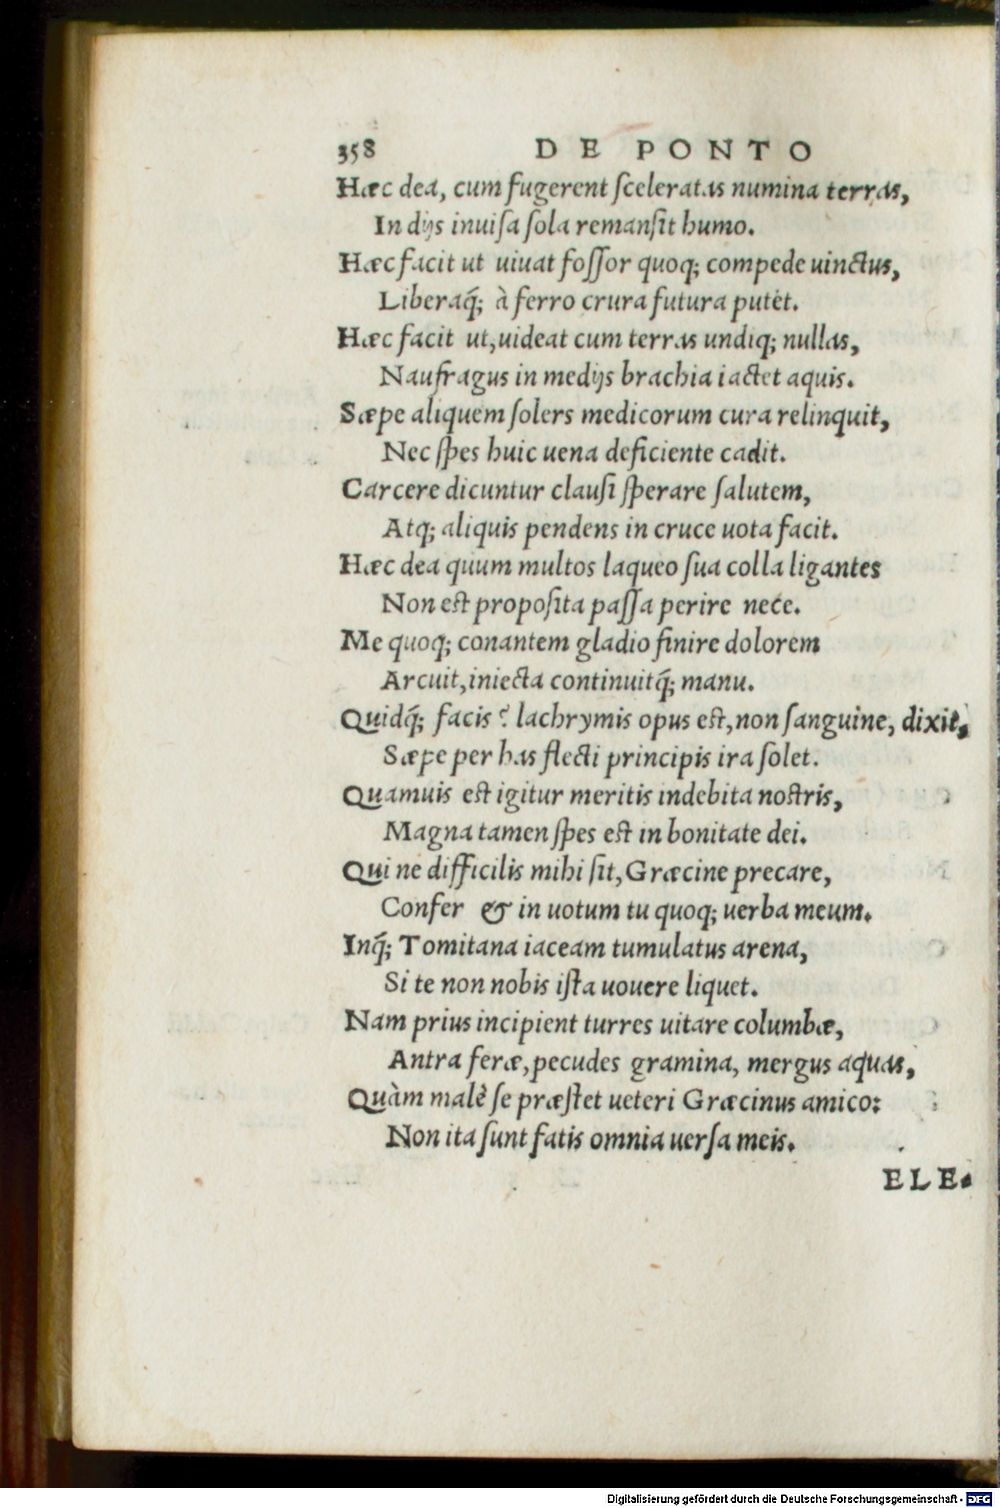 358 DE PONTO
Hæc dea, cum fugerent ſceleratas numina terras,
In dijs inuiſa ſola remanſit humo.
Hæc facit ut uiuat foſſor quoq; compede uinctus,
Liberaq́; à ferro crura futura putet.
Hæc facit ut, uideat cum terras undiq; nullas,
Naufragus in medijs brachia iactet aquis.
Sæpe aliquem ſolers medicorum cura relinquit,
Nec ſpes huic uena deficiente cadit.
Carcere dicuntur clauſi ſperare ſalutem,
Atq; aliquis pendens in cruce uota facit.
Hæc dea quum multos laqueo ſua colla ligantes
Non eſt propoſita paſſa perire nece.
Me quoq; conantem gladio finire dolorem
Arcuit, iniecta continuitq́; manu.
Quidq́; facis? lachrymis opus eſt, non ſanguine, dixit,
Sæpe per has flecti principis ira ſolet.
Quamuis eſt igitur meritis indebita noſtris,
Magna tamen ſpes eſt in bonitate dei.
Qui ne difficilis mihi ſit, Græcine precare,
Confer & in uotum tu quoq; uerba meum.
Inq́; Tomitana iaceam tumulatus arena,
Si te non nobis iſta uouere liquet.
Nam prius incipient turres uitare columbæ,
Antra feræ, pecudes gramina, mergus aquas,
Quàm malè ſe præſtet ueteri Græcinus amico:
Non ita ſunt fatis omnia uerſa meis.
ELE-
Digitalisierung gefördert durch die Deutsche Forschungsgemeinschaft - DFG